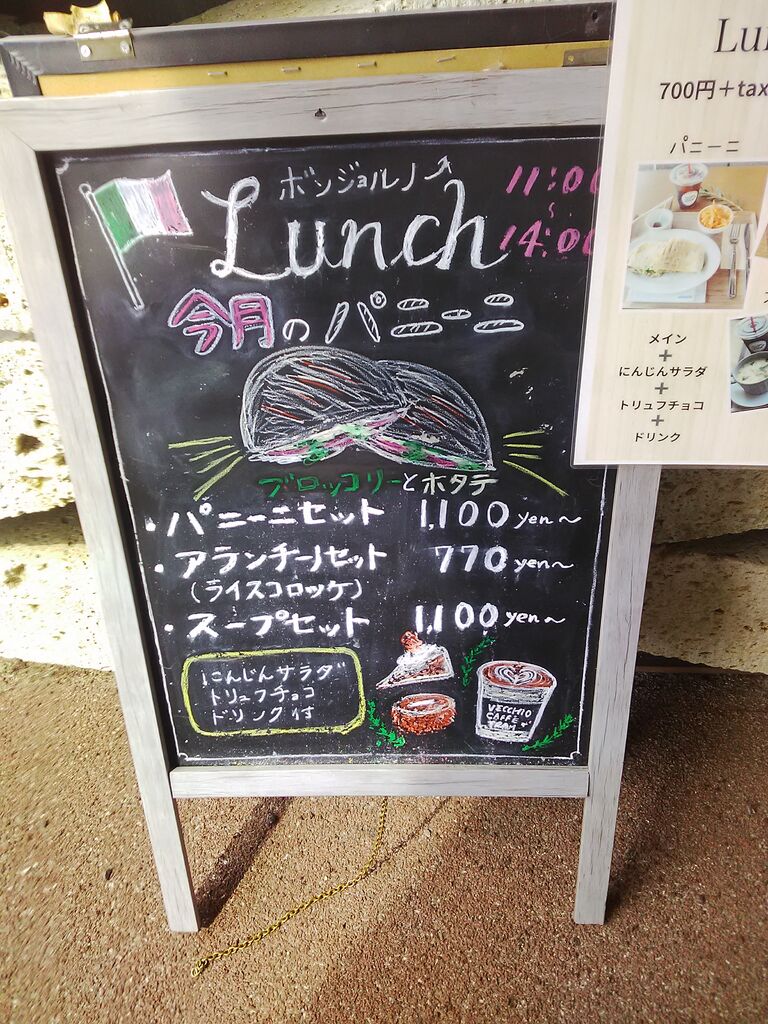 ボンジョルノ
Lunch
11:00
~
14:00
今月のパニーニ
ブロッコリーとホタテ
・パニーニセット 1,100 yen~
・アランチーノセット 770 yen~
(ライスコロッケ)
・スープセット 1,100 yen~
にんじんサラダ
トリュフチョコ
ドリンク付
VECCHIO
CAFFÈ
TRAM
700円+tax
パニーニ
メイン
+
にんじんサラダ
+
トリュフチョコ
+
ドリンク